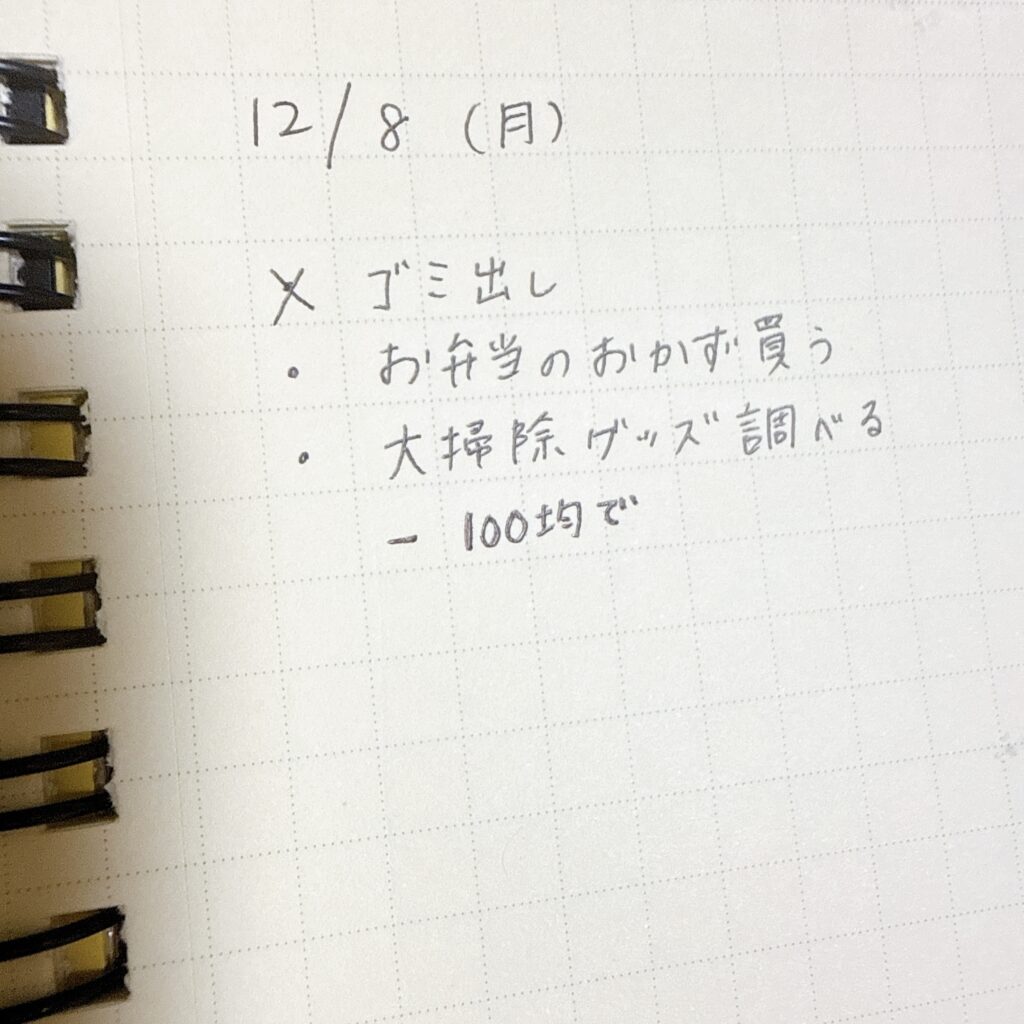 12/8 (月)
× ゴミ出し
・ お弁当のおかず買う
・ 大掃除グッズ調べる
- 100均で